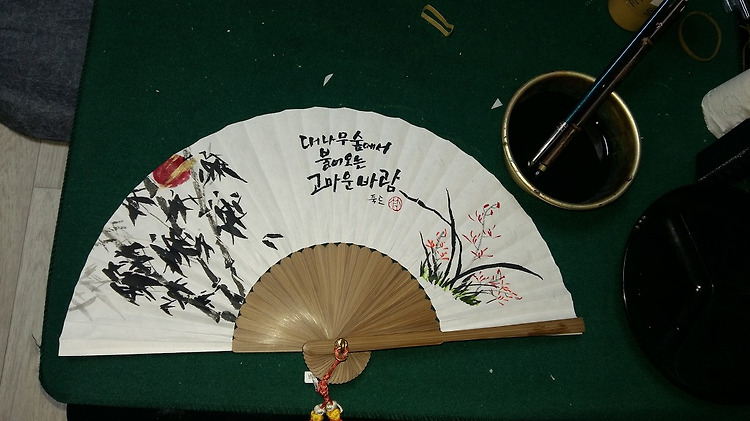 대나무숲에서
불어오는
고마운바람